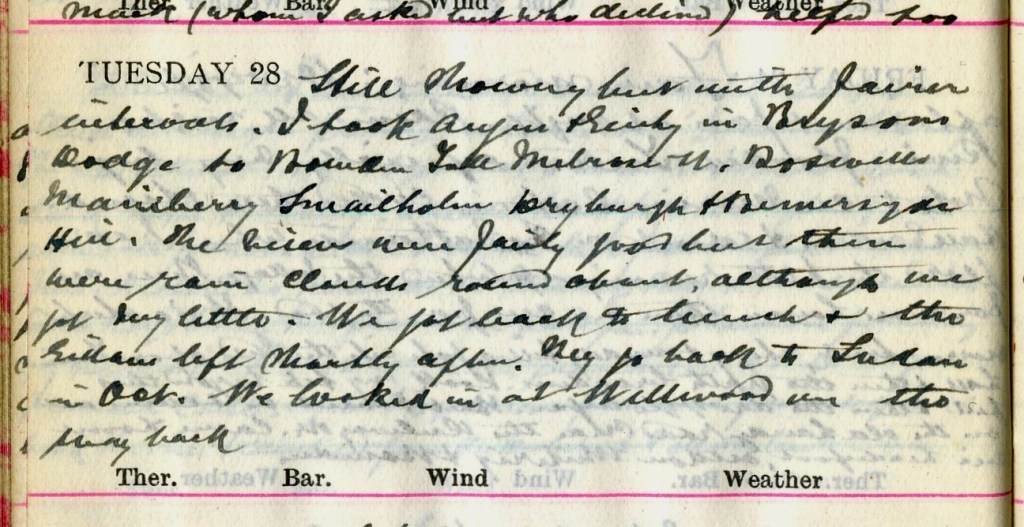 Ther. Bar. Wind Weather
Mack (whom I asked but who declined) helped too
TUESDAY 28 Still showery but with fairer
intervals. I took Angus & in Brysons
Dodge to Bowden Melrose St. Boswells
Smailholm Dryburgh & Bemersyde
Hill. The views were fairly good but there
were rain clouds round about, although we
got very little. We got back to lunch & the
left shortly after. They go back to Sudan
in Oct. We looked in at Wellwood on the
way back
Ther. Bar. Wind Weather